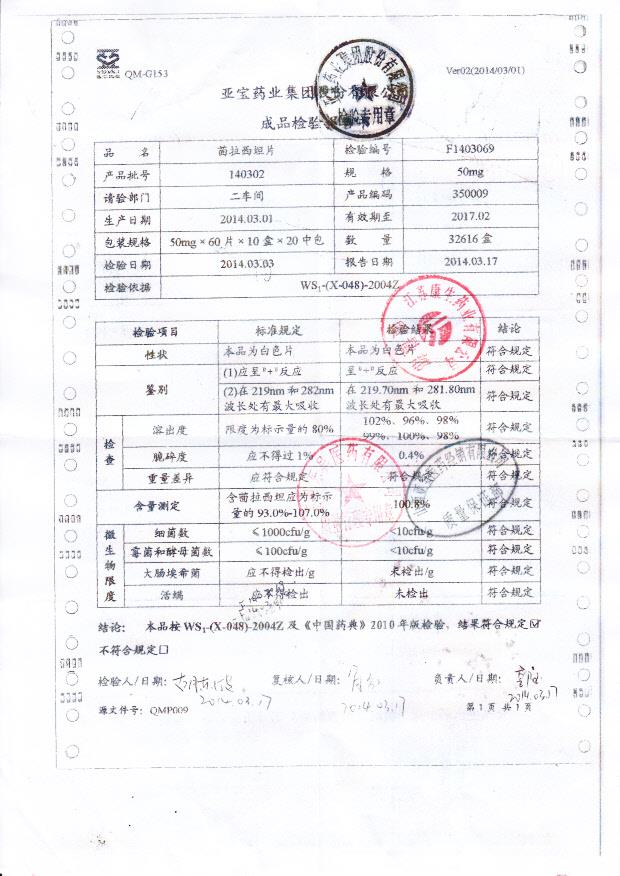 QM-G153
Ver02(2014/03/01)
亚宝药业集团股份有限公司
成品检验
品 名 茴拉西坦片 检验编号 F1403069
产品批号 140302 规 格 50mg
请验部门 二车间 产品编码 350009
生产日期 2014.03.01 有效期至 2017.02
包装规格 50mg×60片×10盒×20中包 数 量 32616盒
检验日期 2014.03.03 报告日期 2014.03.17
检验依据 WS₁-(X-048)-2004Z
检验项目 标准规定 检验结果 结论
性状 本品为白色片 本品为白色片 符合规定
鉴别 (1)应呈"+"反应 呈"+"反应 符合规定
(2)在219nm和282nm波长处有最大吸收 在219.70nm和281.80nm波长处有最大吸收 符合规定
检查 溶出度 限度为标示量的80% 102%、96%、98% 99%、100%、98% 符合规定
脆碎度 应不得过1% 0.4% 符合规定
重量差异 应符合规定 符合规定 符合规定
含量测定 含茴拉西坦应为标示量的93.0%-107.0% 100.8% 符合规定
微生物限度 细菌数 ≤1000cfu/g <10cfu/g 符合规定
霉菌和酵母菌数 ≤100cfu/g <10cfu/g 符合规定
大肠埃希菌 应不得检出/g 未检出/g 符合规定
活螨 应不得检出 未检出 符合规定
结论: 本品按WS₁-(X-048)-2004Z及《中国药典》2010年版检验，结果符合规定☑
不符合规定☐
检验人/日期: 复核人/日期: 负责人/日期:
2014.03.17 2014.03.17 2014.03.17
源文件号: QMP009 第1页 共1页
检验专用章
江苏康生药业有限公司
质量保证部